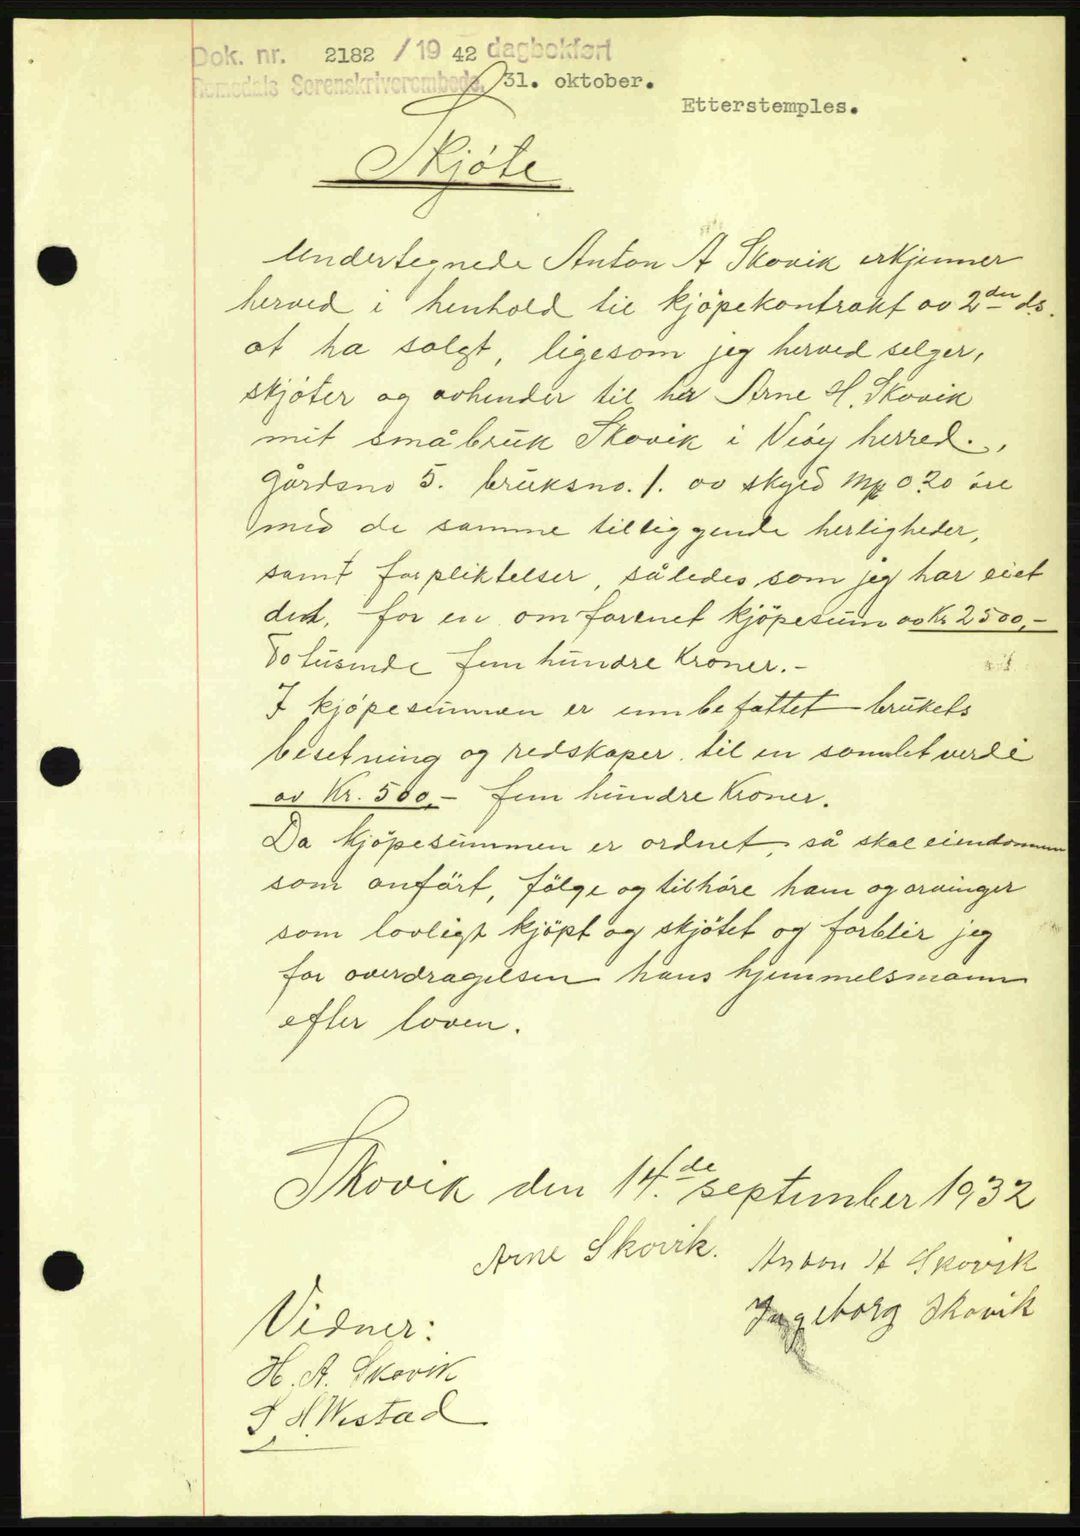 Dok. nr. 2182 / 19 42 dagbokført
Romsdals Sorenskriverembede, 31. oktober.
Etterstemples.
Skjöte
Undertegnede Anton A Skovik erkjenner
herved i henhold til kjöpekontrakt av 2den ds.
at ha solgt, ligesom jeg herved selger,
skjöter og avhender til hr Arne H. Skovik
mit småbruk Skovik i Veöy herred.,
gårdsno 5. bruksno. 1. av skyld Mk 0.20 öre
med de samme tilliggende herligheder,
samt forpliktelser, således som jeg har eiet
det, for en omforenet kjöpesum av Kr 2500,-
To tusinde fem hundre Kroner.-
I kjöpesummen er innbefattet brukets
besetning og redskaper til en samlet verdi
av Kr. 500,- fem hundre Kroner.
Da kjöpesummen er ordnet, så skal eiendommen
som anfört, fölge og tilhöre ham og arvinger
som lovligt kjöpt og skjötet og forblir jeg
for overdragelsen hans hjemmelsmann
efter loven.
Skovik den 14.de september 1932
Arne Skovik. Anton A Skovik
Ingeborg Skovik
Vidner:
H. A. Skovik
S. H. Westad